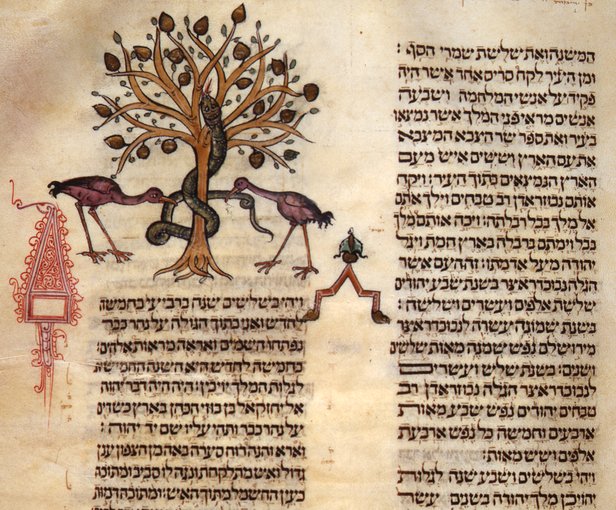 המשנה ואת שלישת שמרי הסף :
ומן העיר לקח סריס אחד אשר היה
פקיד על אנשי המלחמה ושבעה
אנשים מראי פני המלך אשר נמצאו
בעיר ואת ספר שר הצבא המצבא
את עם הארץ וששים איש מעם
הארץ הנמצאים בתוך העיר : ויקח
אותם נבוזראדן רב טבחים וילך אתם
אל מלך בבל רבלתה : ויכה אותם מלך
בבל וימתם ברבלה בארץ חמת ויגל
יהודה מעל אדמתו : זה העם אשר
הגלה נבוכדראצר בשנת שבע יהודים
שלשת אלפים ועשרים ושלשה :
בשנת שמונה עשרה לנבוכדראצר
מירושלם נפש שמנה מאות שלשים
ושנים : בשנת שלש ועשרים
לנבוכדראצר הגלה נבוזראדן רב
טבחים יהודים נפש שבע מאות
ארבעים וחמשה כל נפש ארבעת
אלפים ושש מאות :
ויהי בשלשים ושבע שנה לגלות
יהויכן מלך יהודה בשנים עשר
ויהי בשלשים שנה ברביעי בחמשה
לחדש ואני בתוך הגולה על נהר כבר
נפתחו השמים ואראה מראות אלהים :
בחמשה לחדש היא השנה החמישית
לגלות המלך יויכין : היה היה דבר יהוה
אל יחזקאל בן בוזי הכהן בארץ כשדים
על נהר כבר ותהי עליו שם יד יהוה :
וארא והנה רוח סערה באה מן הצפון ענן
גדול ואש מתלקחת ונגה לו סביב ומתוכה
כעין החשמל מתוך האש : ומתוכה דמות